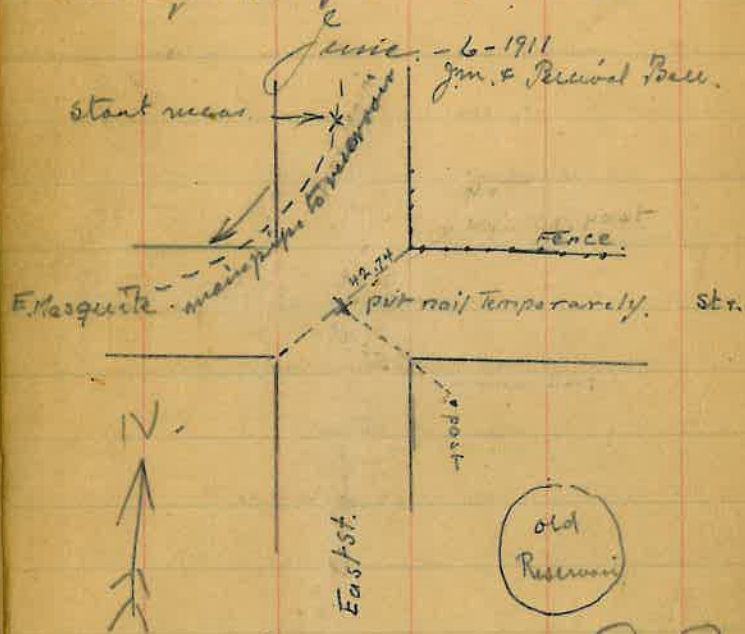 June - 6 - 1911
J.M. & Percival Bell.
Start meas.
main pipe to reservoir
Fence.
42.74
E. Mesquite
put nail Temporarely.
Str.
post
N.
East St.
old
Reservoir